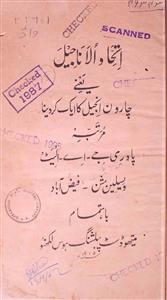 CHECKED
SCANNED
اتحاد الاناجیل
یعنے
چارون انجیل کا ایک کر دینا
Checked
1987
CHECKED
مرتبہ
پادری جے۔ اے۔ ایلیٹ
ویسلین مشن۔ فیض آباد
باہتمام
میتھوڈسٹ پبلشنگ ہوس لکھنؤ
CHECKED